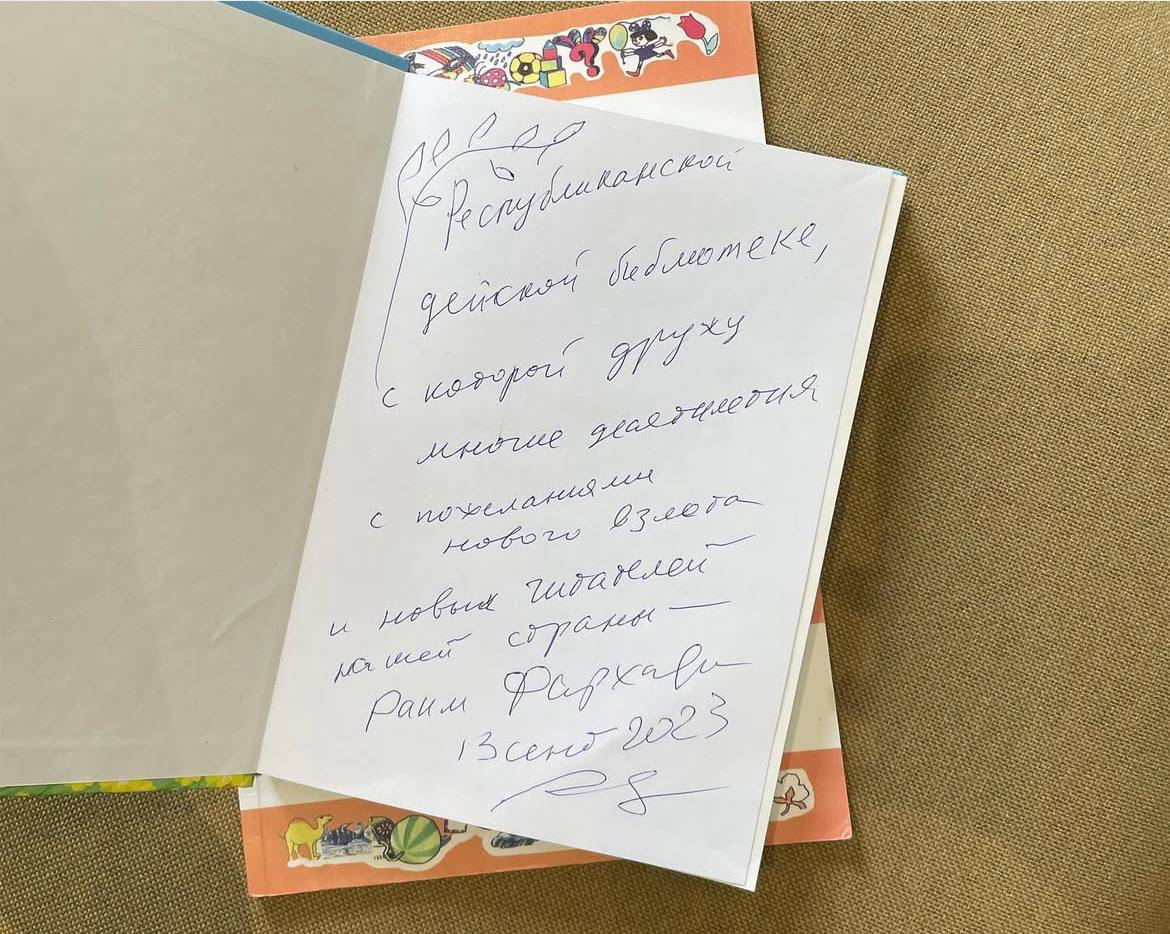 Республиканской
дейской библиотеке,
с которой дружу
многие десятилетия
с пожеланиями
нового взлёта
и новых читателей
нашей страны —
Раим Фархади
13 сент 2023